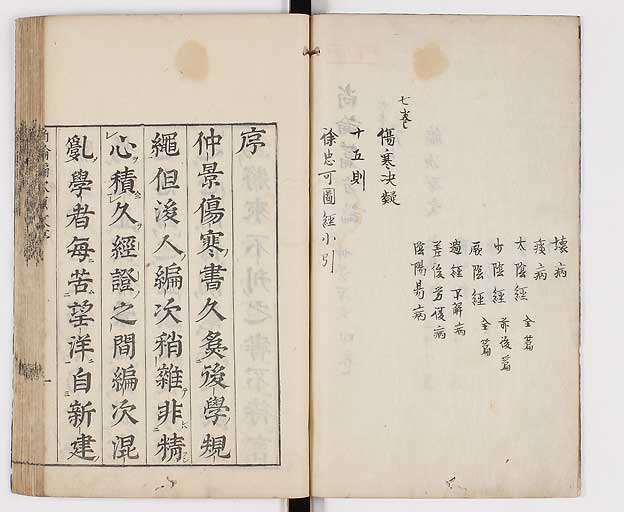 壞病
痰病
太陰經 全篇
少陰經 前後篇
厥陰經 全篇
過經不解病
差後勞復病
陰陽易病
七卷
傷寒決疑
十五則
徐忠可圖經小引
序
仲景傷寒書久為後學規
繩但後人編次稍雜非精
心積久經證之間編次混
亂學者每苦望洋自新建